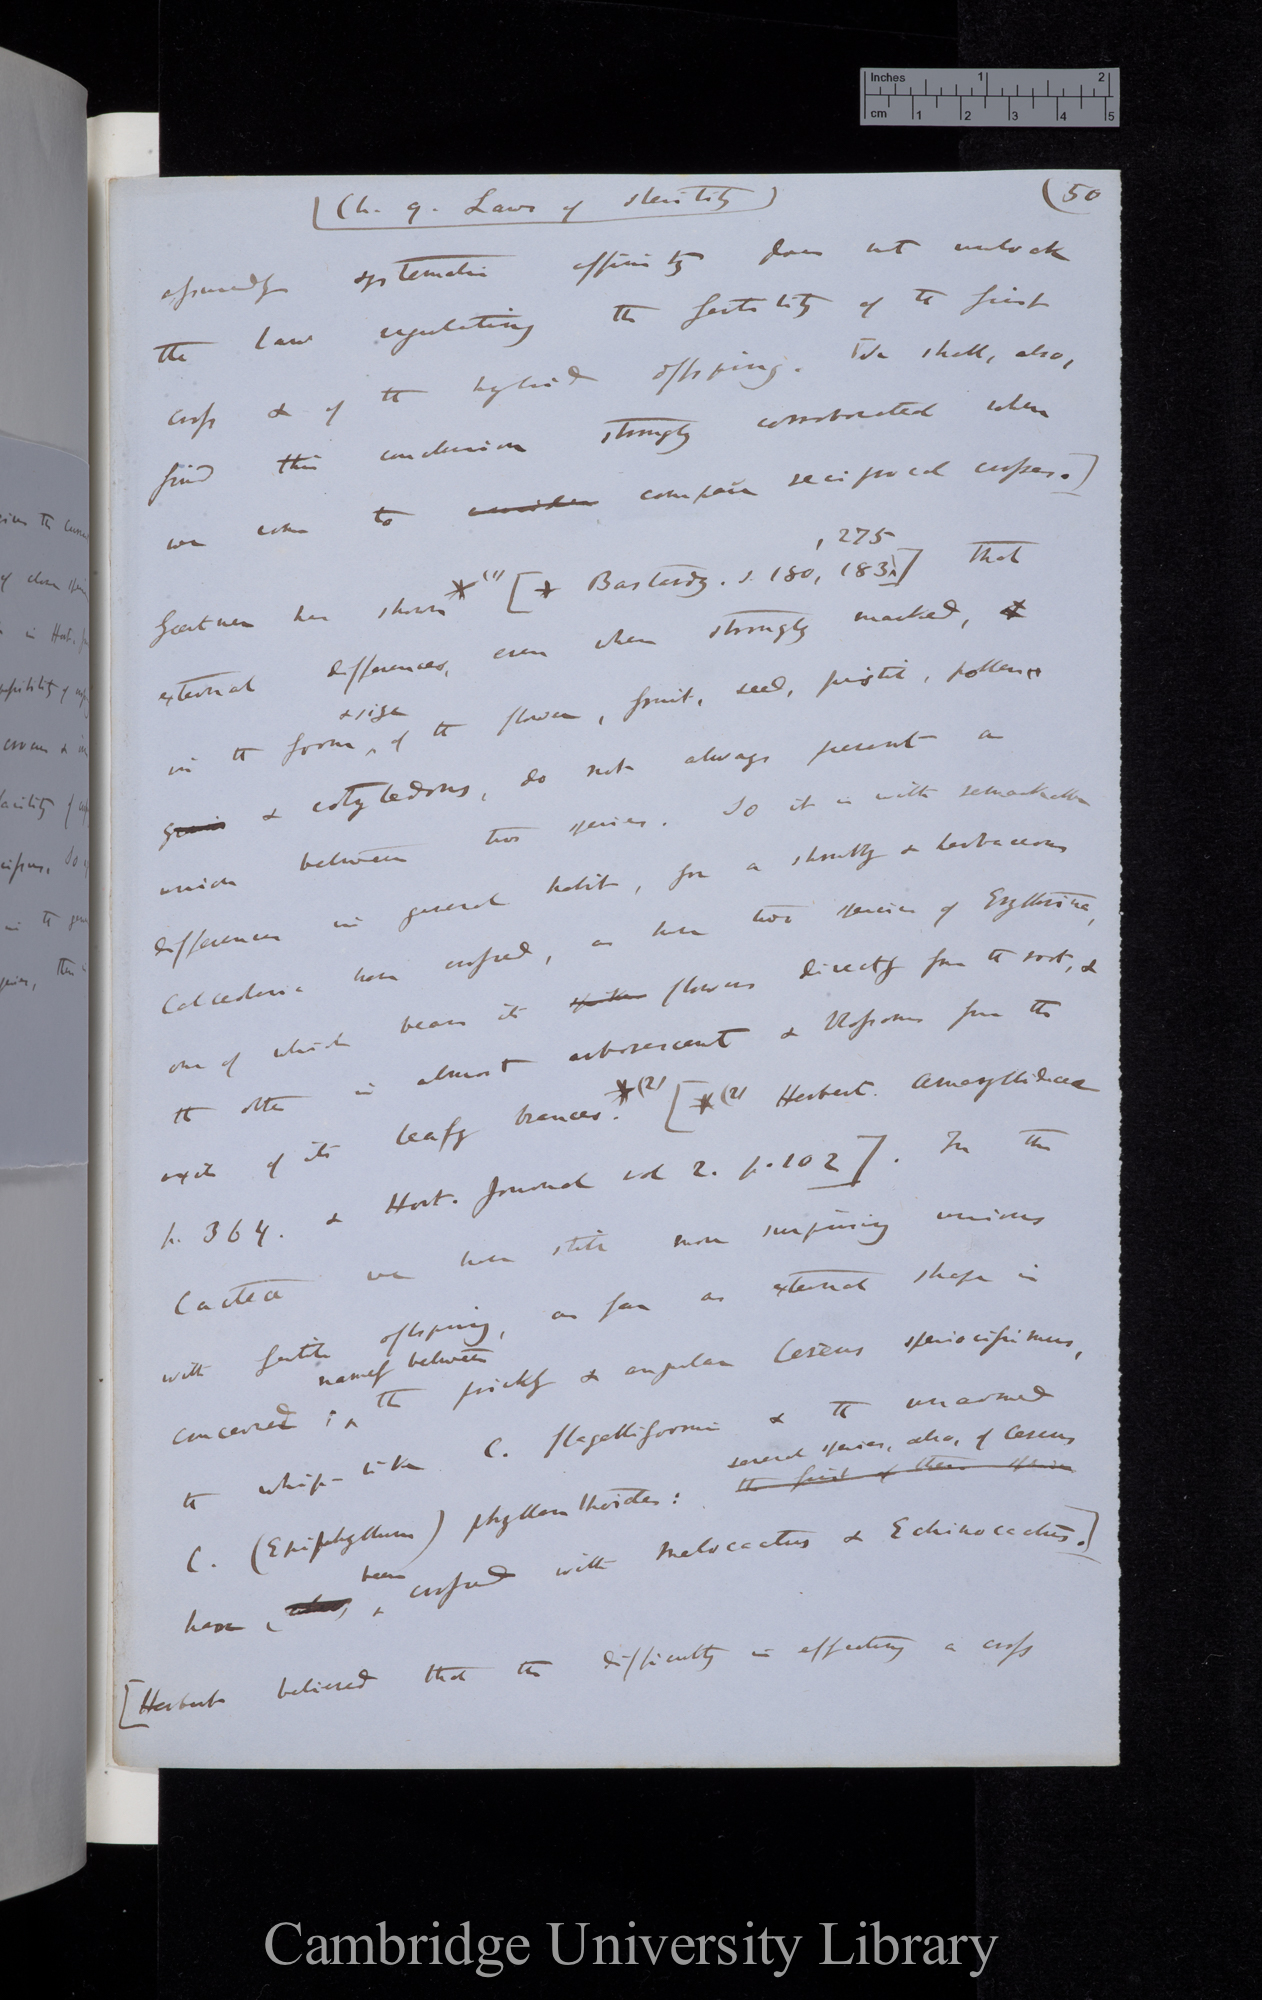 Inches 1 2
cm 1 2 3 4 5
(Ch. 9. Laws of sterility) (50
assuredly systematic affinity does not unlock
the law regulating the fertility of the first
cross & of the hybrid offspring. We shall, also,
find this conclusion strongly corroborated when
we come to consider compare reciprocal crosses.]
, 275
Gærtner has shown *(1) [* Bastardz. s. 180, 183] that
external differences, even when strongly marked,
& size
in the form of the flower, fruit, seed, pistil, pollen
& cotyledons, do not always prevent a
union between two species. So it is with remarkable
differences in general habit, for a shrubby & herbaceous
Calceolaria have crossed, as have two species of Erythrina,
one of which bears its spikes flowers directly from the root, &
the other is almost arborescent & blossoms from the
axils of its leafy brances. *(2) [*(2) Herbert. Amaryllidaceæ
p. 364. & Hort. Journal vol 2. p. 102]. In the
Cacteæ we have still more surprising unions
with fertile offspring, as far as external shape is
namely between
concerned; the prickly & angular Cereus speciosissimus,
the whip-like C. flagelliformis & the unarmed
several species, also, of Cereus
C. (Epiphyllum) phyllanthoides: the first of these species
been
have, also, crossed with Melocactus & Echinocactus.]
[Herbert believed that the difficulty in effecting a cross
Cambridge University Library